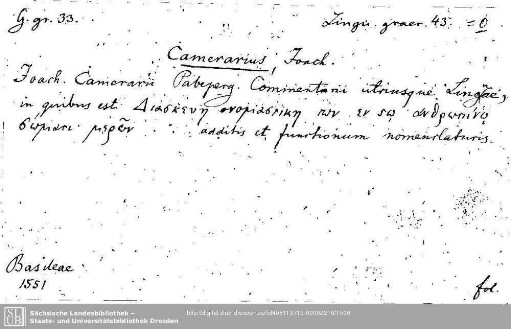 G. gr. 33.
Lingu. graec. 45. = 0
Camerarius, Joach.
Joach. Camerarii Pabeperg. Commentarii utriusque Linguae,
in quibus est Διασκευη ονομαστικη των εν τω ανθρωπινῳ
σωματι μερῶν additis et functionum nomenclaturis.
Basileae
1551
fol.
Sächsische Landesbibliothek –
Staats- und Universitätsbibliothek Dresden